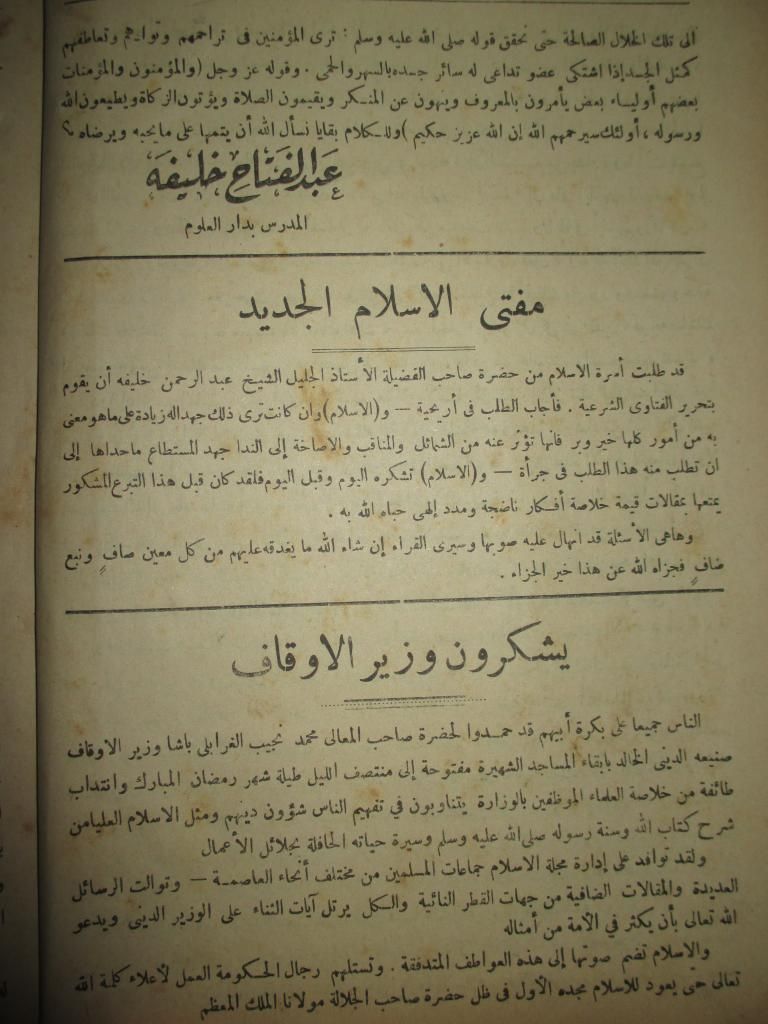 الى تلك الخلال الصالحة حتى نحقق قوله صلى الله عليه وسلم : ترى المؤمنين فى تراحمهم وتوادهم وتعاطفهم
كمثل الجسد إذا اشتكى عضو تداعى له سائر جسده بالسهر والحمى . وقوله عز وجل (والمؤمنون والمؤمنات
بعضهم أولياء بعض يأمرون بالمعروف وينهون عن المنكر ويقيمون الصلاة ويؤتون الزكاة ويطيعون الله
ورسوله ، أولئك سيرحمهم الله إن الله عزيز حكيم ) وللكلام بقايا نسأل الله أن يتمها على مايحبه ويرضاه ؟
عبد الفتاح خليفه
المدرس بدار العلوم
مفتى الاسلام الجديد
قد طلبت أسرة الاسلام من حضرة صاحب الفضيلة الأستاذ الجليل الشيخ عبد الرحمن خليفه أن يقوم
بتحرير الفتاوى الشرعية . فأجاب الطلب فى أريحية — و(الاسلام) وان كانت ترى ذلك جهداله زيادة على ماهو معنى
به من أمور كلها خير وبر فانها تؤثر عنه من الشمائل والمناقب والاصاخة إلى الندا جهد المستطاع ماحداها إلى
ان تطلب منه هذا الطلب فى جرأة — و(الاسلام) تشكره اليوم وقبل اليوم فلقد كان قبل هذا التبرع المشكور
يمتعها بمقالات قيمة خلاصة أفكار ناضجة ومدد إلهى حباه الله به .
وهاهى الأسئلة قد انهال عليه صوبها وسيرى القراء إن شاء الله ما يغدقه عليهم من كل معين صافٍ ونبع
ضافٍ فجزاه الله عن هذا خير الجزاء .
يشكرون وزير الاوقاف
الناس جميعا على بكرة أبيهم قد حمدوا لحضرة صاحب المعالى محمد نجيب الغرابلى باشا وزير الاوقاف
صنيعه الدينى الخالد بابقاء المساجد الشهيرة مفتوحة إلى منتصف الليل طيلة شهر رمضان المبارك وانتداب
طائفة من خلاصة العلماء الموظفين بالوزارة يتناوبون في تفهيم الناس شؤون دينهم ومثل الاسلام العليا من
شرح كتاب الله وسنة رسوله صلى الله عليه وسلم وسيرة حياته الحافلة بجلائل الأعمال
ولقد توافد على إدارة مجلة الاسلام جماعات المسلمين من مختلف أنحاء العاصمة — وتوالت الرسائل
العديدة والمقالات الضافية من جهات القطر النائية والكل يرتل آيات الثناء على الوزير الدينى ويدعو
الله تعالى بأن يكثر في الأمة من أمثاله
والاسلام تضم صوتها إلى هذه العواطف المتدفقة . وتستلهم رجال الحكومة العمل لأعلاء كلمة الله
تعالى حتى يعود للاسلام مجده الأول فى ظل حضرة صاحب الجلالة مولانا الملك المعظم